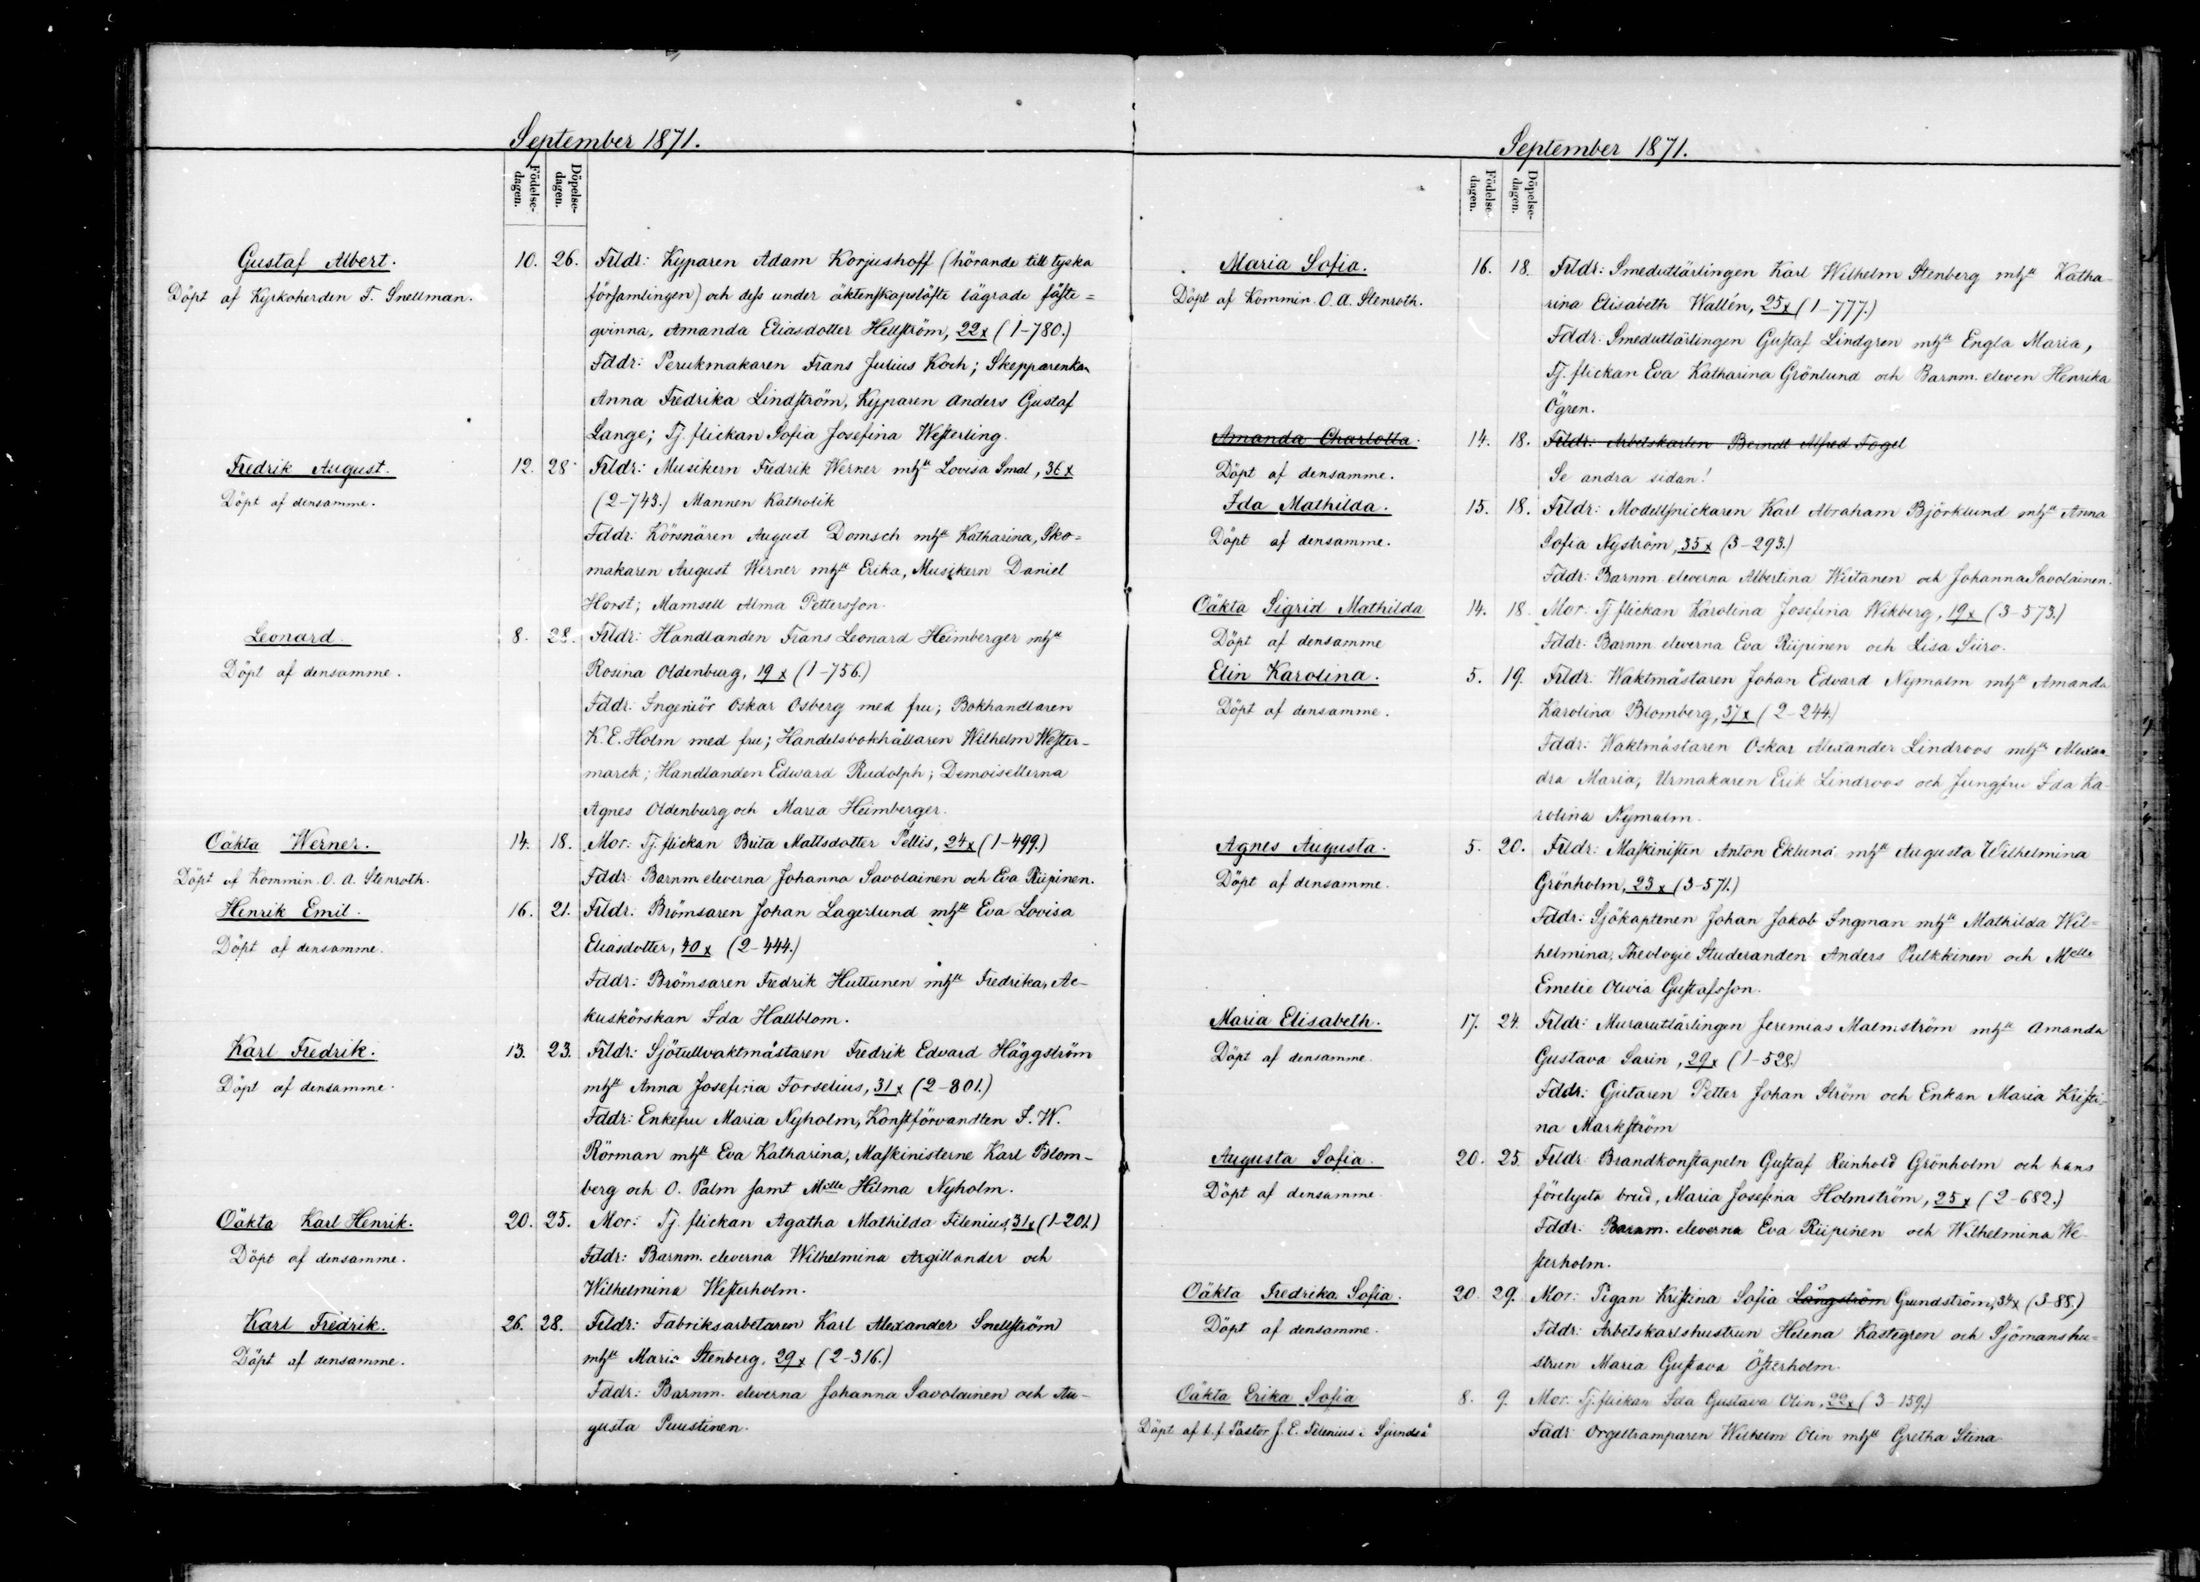 September 1871.
Födelse-
dagen.
Döpelse-
dagen.
Gustaf Albert.
Döpt af Kyrkoherden F. Snellman.
10. 26. Frldr: Kyparen Adam Korjushoff (hörande till tyska
församlingen) och dess under äktenskapslöfte lägrade fäste=
qvinna, Amanda Eliasdotter Hellström, 22x (1-780.)
Fddr: Perukmakaren Frans Julius Koch; Skepparenkan
Anna Fredrika Lindström, Kyparen Anders Gustaf
Lange; Tj. flickan Sofia Josefina Westerling.
Fredrik August.
Döpt af densamme.
12. 28. Frldr: Musikern Fredrik Werner mhu Lovisa Smal, 36x
(2-743.) Mannen Katholik
Fddr: Körsnären August Domsch mhu Katharina, Sko=
makaren August Werner mhu Erika, Musikern Daniel
Horst; Mamsell Alma Pettersson.
Leonard.
Döpt af densamme.
8. 28. Frldr: Handlanden Frans Leonard Heimberger mhu
Rosina Oldenburg, 19x (1-756.)
Fddr: Ingeniör Oskar Osberg med fru; Bokhandlaren
K. E. Holm med fru; Handelsbokhållaren Wilhelm Wester-
marck; Handlanden Edward Rudolph; Demoisellerna
Agnes Oldenburg och Maria Heimberger.
Oäkta Werner.
Döpt af Kommin. O. A. Stenroth.
14. 18. Mor: Tj. flickan Brita Mattsdotter Pellis, 24x (1-499.)
Fddr: Barnm. eleverna Johanna Savolainen och Eva Riipinen.
Henrik Emil.
Döpt af densamme.
16. 21. Frldr: Brömsaren Johan Lagerlund mhu Eva Lovisa
Eliasdotter, 40x (2-444.)
Fddr: Brömsaren Fredrik Huttunen mhu Fredrika, Ae-
kuskörskan Ida Hallblom.
Karl Fredrik.
Döpt af densamme.
13. 23. Frldr: Sjötullvaktmästaren Fredrik Edvard Häggström
mhu Anna Josefina Forselius, 31x (2-801.)
Fddr: Enkefru Maria Nyholm, Konstförvandten S. W.
Rörman mhu Eva Katharina, Maskinisterne Karl Blom-
berg och O. Palm samt Melle Hilma Nyholm.
Oäkta Karl Henrik.
Döpt af densamme.
20. 25. Mor: Tj. flickan Agatha Mathilda Filenius, 31x (1-201.)
Fddr: Barnm. eleverna Wilhelmina Argillander och
Wilhelmina Westerholm.
Karl Fredrik.
Döpt af densamme.
26. 28. Frldr: Fabriksarbetaren Karl Alexander Snellström
mhu Maria Stenberg, 29x (2-316.)
Fddr: Barnm. eleverna Johanna Savolainen och Au-
gusta Puustinen.
September 1871.
Födelse-
dagen.
Döpelse-
dagen.
Maria Sofia.
Döpt af Kommin. O. A. Stenroth.
16. 18. Frldr: Smedutlärlingen Karl Wilhelm Stenberg mhu Katha-
rina Elisabeth Wallén, 25x (1-777.)
Fddr: Smedutlärlingen Gustaf Lindgren mhu Engla Maria,
Tj. flickan Eva Katharina Grönlund och Barnm. eleven Henrika
Ögren.
Amanda Charlotta.
Döpt af densamme.
14. 18. Frldr: Arbetskarlen Berndt Alfred Fogel
Se andra sidan!
Ida Mathilda.
Döpt af densamme.
15. 18. Frldr: Modellsnickaren Karl Abraham Björklund mhu Anna
Sofia Nyström, 35x (3-293.)
Fddr: Barnm. eleverna Albertina Wiitanen och Johanna Savolainen.
Oäkta Sigrid Mathilda
Döpt af densamme
14. 18. Mor: Tj flickan Karolina Josefina Wikberg, 19x (3-573.)
Fddr: Barnm. eleverna Eva Riipinen och Lisa Siiro.
Elin Karolina.
Döpt af densamme.
5. 19. Frldr: Waktmästaren Johan Edvard Nymalm mhu Amanda
Karolina Blomberg, 37x (2-244.)
Fddr: Waktmästaren Oskar Alexander Lindroos mhu Alexan-
dra Maria; Urmakaren Erik Lindroos och Jungfru Ida Ka-
rolina Nymalm.
Agnes Augusta.
Döpt af densamme.
5. 20. Frldr: Maskinisten Anton Eklund mhu Augusta Wilhelmina
Grönholm, 23x (3-571.)
Fddr: Sjökaptenen Johan Jakob Ingman mhu Mathilda Wil=
helmina, Theologie Studeranden Anders Pulkkinen och Melle
Emelie Olivia Gustafsson.
Maria Elisabeth.
Döpt af densamme.
17. 24. Frldr: Murarutlärlingen Jeremias Malmström mhu Amanda
Gustava Sarin, 29x (1-528.)
Fddr: Gjutaren Petter Johan Ström och Enkan Maria Kristi-
na Markström
Augusta Sofia.
Döpt af densamme.
20. 25. Frldr: Brandkonstapeln Gustaf Reinhold Grönholm och hans
förelysta brud, Maria Josefina Holmström, 25x (2-682.)
Fddr: Barnm. eleverna Eva Riipinen och Wilhelmina We-
sterholm.
Oäkta Fredrika Sofia.
Döpt af densamme.
20. 29. Mor: Pigan Kristina Sofia Långström Grundström, 34x (3-88.)
Fddr: Arbetskarlshustrun Helena Kastegren och Sjömanshu=
strun Maria Gustava Österholm.
Oäkta Erika Sofia
Döpt af t. f. Pastor J. E. Filenius i Sjundeå
8. 9. Mor: Tj. flickan Ida Gustava Olin, 22x (3-159.)
Fddr: Orgeltramparen Wilhelm Olin mhu Gretha Stina.